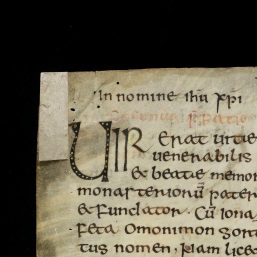 In nomine ihū xp̄i
UIR ERAT uitae
uenerabilis
& beatae memor
monasteriorū pater
& fundator. Cū iona
feta omonimon sorti
tus nomen. Nam lice